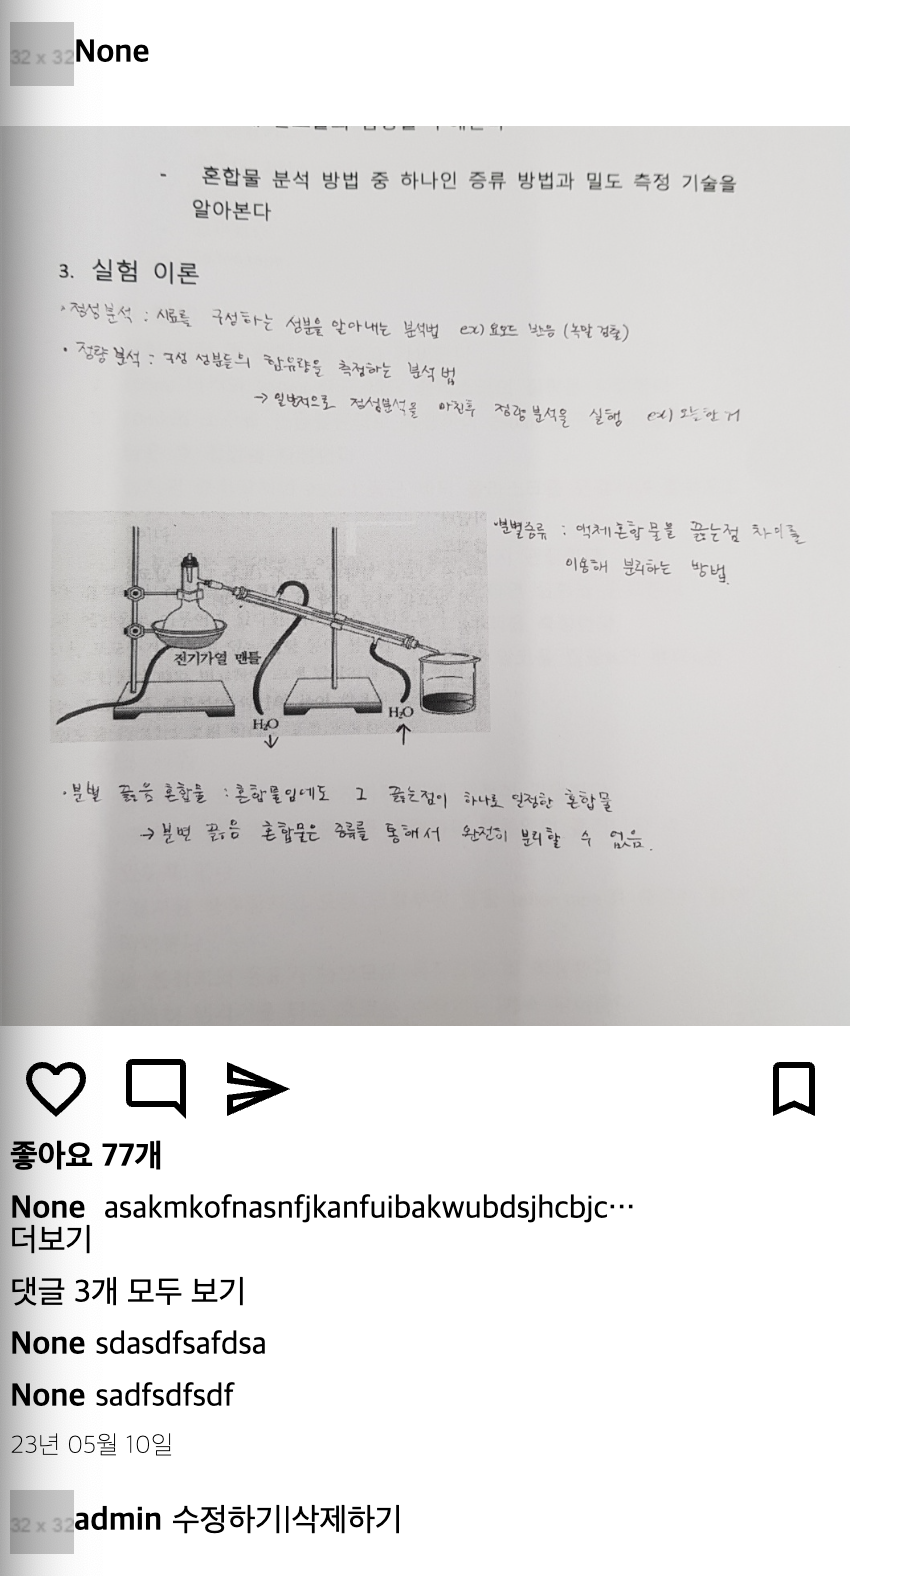 32 x 32 None
- 혼합물 분석 방법 중 하나인 증류 방법과 밀도 측정 기술을
알아본다
3. 실험 이론
· 정성분석 : 시료를 구성하는 성분을 알아내는 분석법 ex) 요오드 반응 (녹말 검출)
· 정량분석 : 구성 성분들의 함유량을 측정하는 분석법
→ 일반적으로 정성분석을 마친후 정량분석을 실행 ex) 오늘한거
·분별증류 : 액체혼합물블 끓는점 차이를
이용해 분리하는 방법.
전기가열 맨틀
H₂O
↓
H₂O
↑
· 분별 끓음 혼합물 : 혼합물임에도 그 끓는점이 하나로 일정한 혼합물
→ 분변 끓음 혼합물은 증류를 통해서 완전히 분리할 수 없음.
좋아요 77개
None asakmkofnasnfjkanfuibakwubdsjhcbjc…
더보기
댓글 3개 모두 보기
None sdasdfsafdsa
None sadfsdfsdf
23년 05월 10일
32 x 32 admin 수정하기|삭제하기